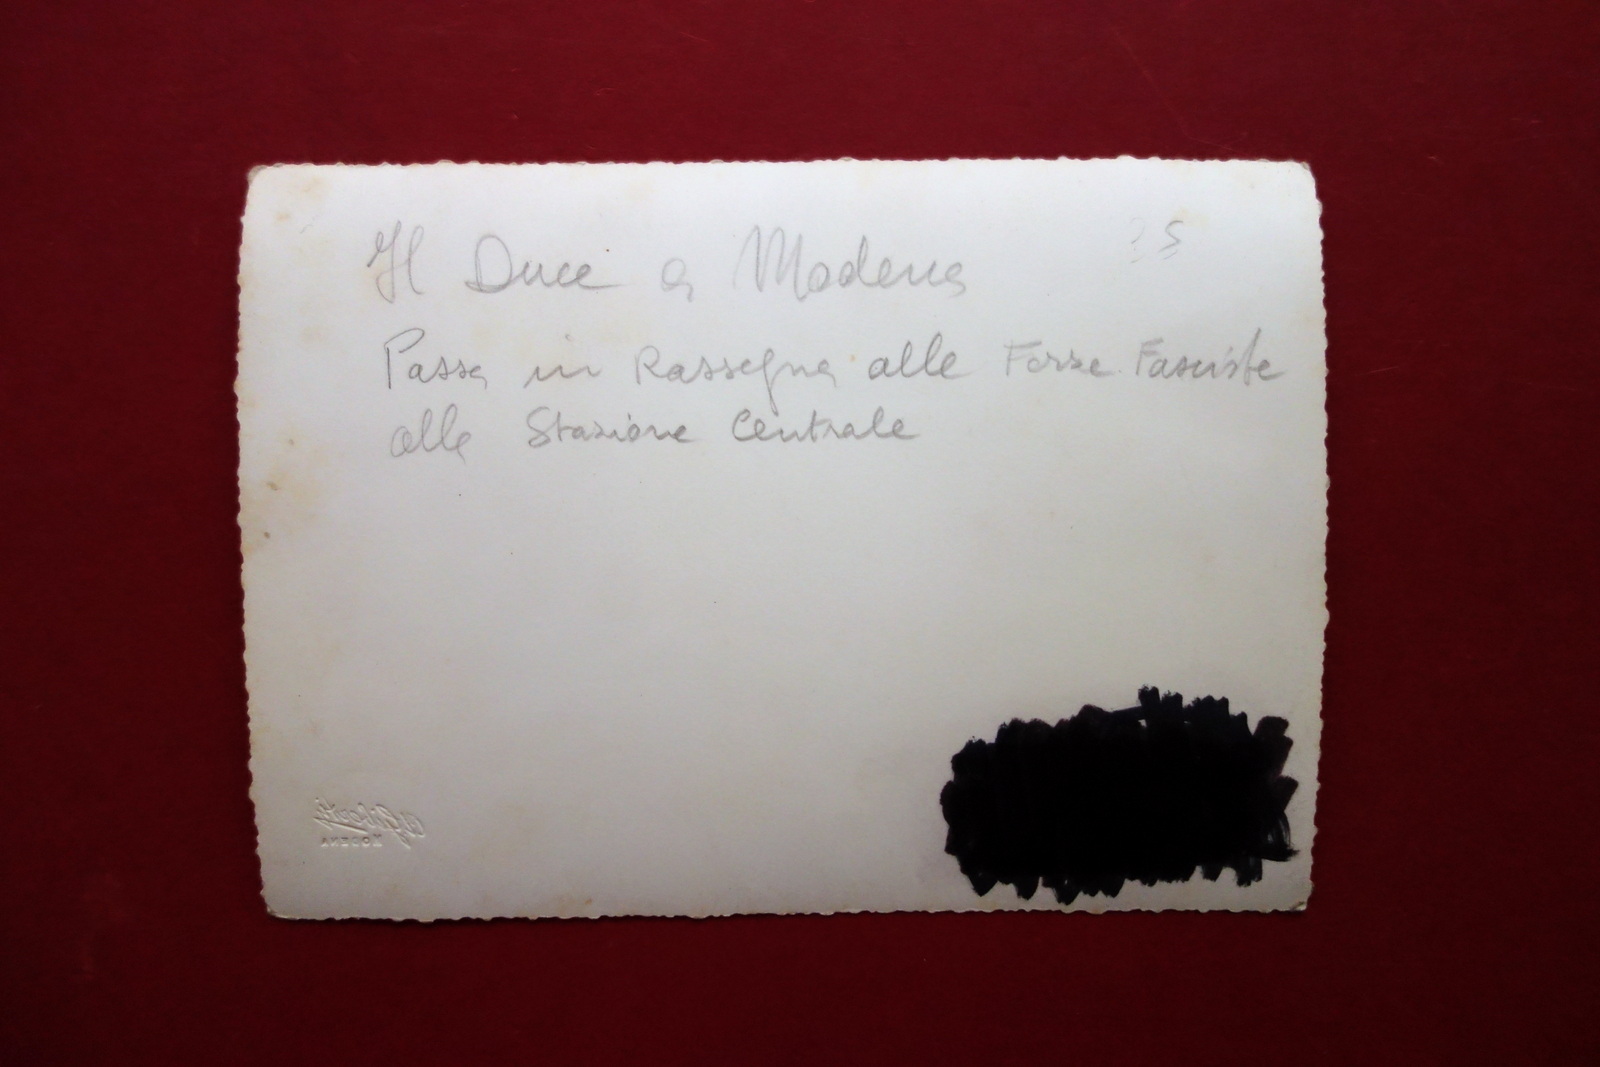 Il Duce a Modena
Passa in Rassegna alle Forze Fasciste
alla Stazione Centrale
MODENA